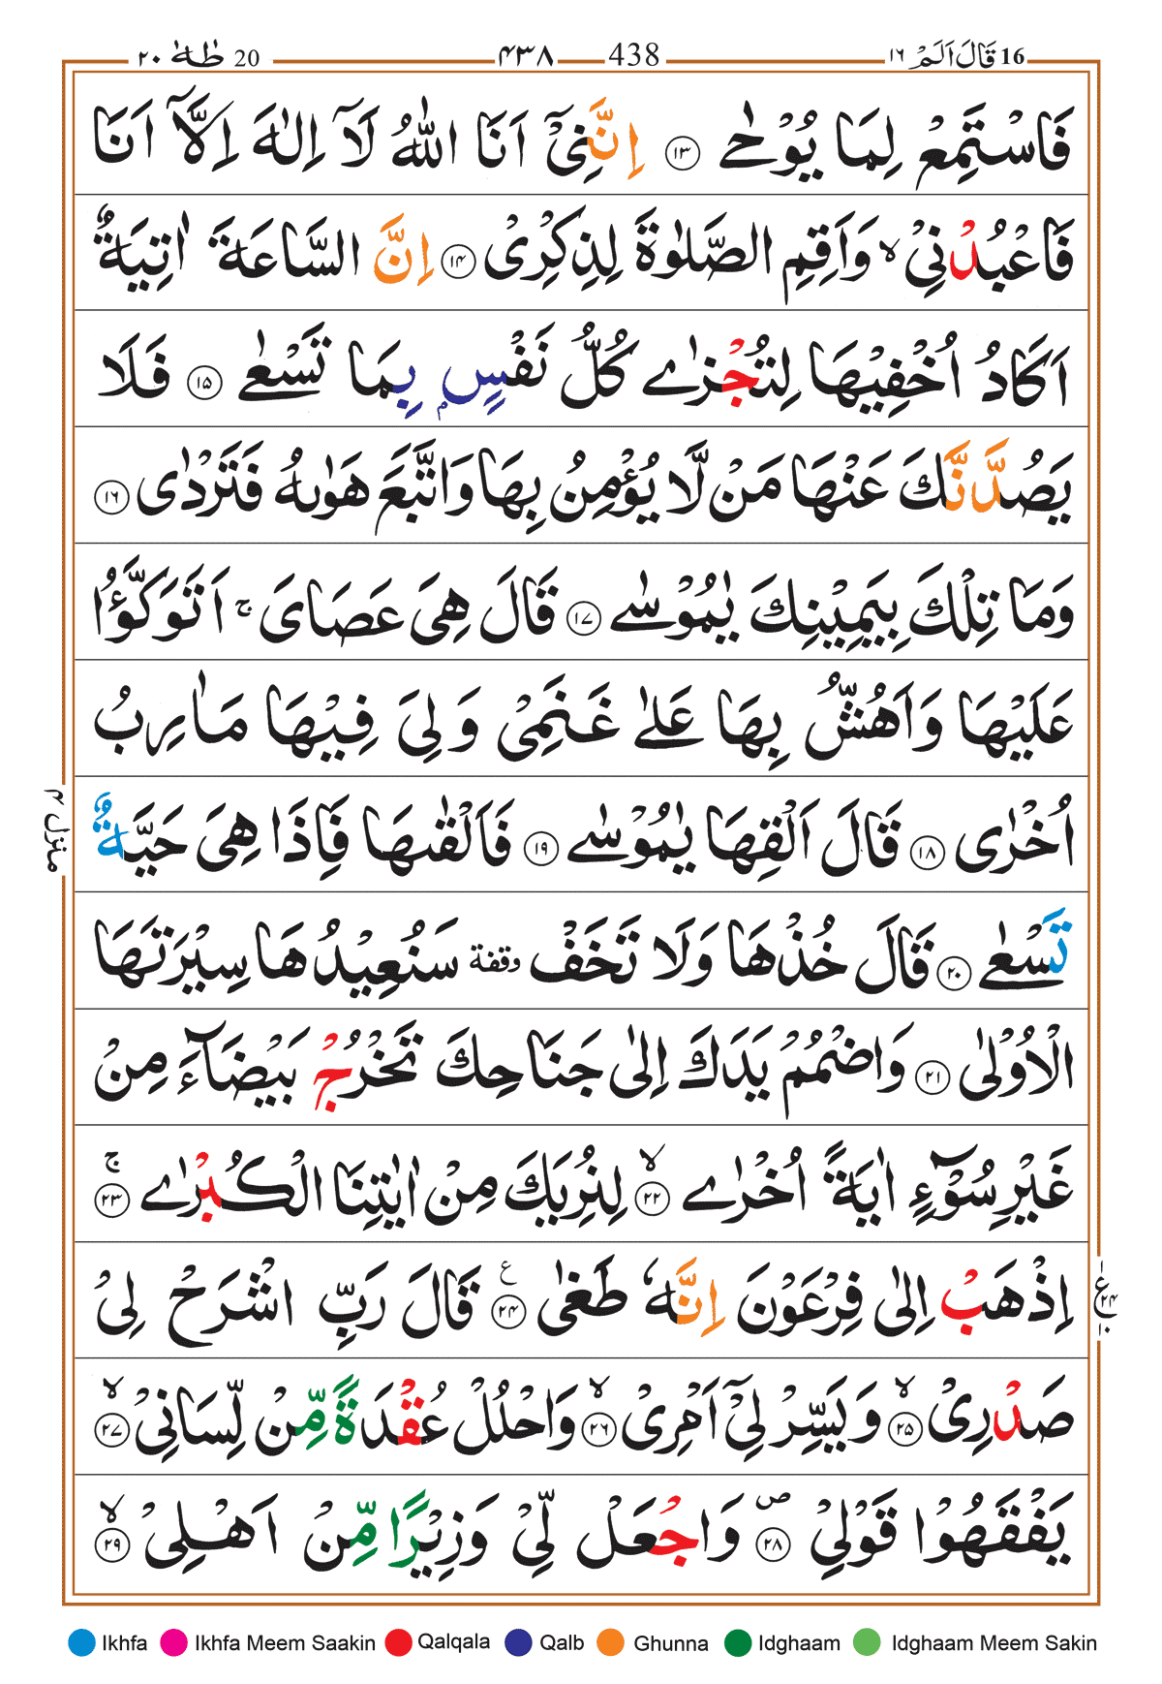 16 قَالَ اَلَمْ ١٦ 438 ۴۳۸ 20 طٰهٰ ٢٠
فَاسْتَمِعْ لِمَا يُوْحٰى ﴿۱۳﴾ اِنَّنِيْۤ اَنَا اللّٰهُ لَاۤ اِلٰهَ اِلَّاۤ اَنَا
فَاعْبُدْنِيْ ۙ وَاَقِمِ الصَّلٰوةَ لِذِكْرِيْ ﴿۱۴﴾ اِنَّ السَّاعَةَ اٰتِيَةٌ
اَكَادُ اُخْفِيْهَا لِتُجْزٰى كُلُّ نَفْسٍۭ بِمَا تَسْعٰى ﴿۱۵﴾ فَلَا
يَصُدَّنَّكَ عَنْهَا مَنْ لَّا يُؤْمِنُ بِهَا وَاتَّبَعَ هَوٰىهُ فَتَرْدٰى ﴿۱۶﴾
وَمَا تِلْكَ بِيَمِيْنِكَ يٰمُوْسٰى ﴿۱۷﴾ قَالَ هِيَ عَصَايَ ۚ اَتَوَكَّؤُا
عَلَيْهَا وَاَهُشُّ بِهَا عَلٰى غَنَمِيْ وَلِيَ فِيْهَا مَاٰرِبُ
اُخْرٰى ﴿۱۸﴾ قَالَ اَلْقِهَا يٰمُوْسٰى ﴿۱۹﴾ فَاَلْقٰىهَا فَاِذَا هِيَ حَيَّةٌ
تَسْعٰى ﴿۲۰﴾ قَالَ خُذْهَا وَلَا تَخَفْ وقفة سَنُعِيْدُهَا سِيْرَتَهَا
الْاُوْلٰى ﴿۲۱﴾ وَاضْمُمْ يَدَكَ اِلٰى جَنَاحِكَ تَخْرُجْ بَيْضَآءَ مِنْ
غَيْرِ سُوْٓءٍ اٰيَةً اُخْرٰى ۙ﴿۲۲﴾ لِنُرِيَكَ مِنْ اٰيٰتِنَا الْكُبْرٰى ۚ﴿۲۳﴾
اِذْهَبْ اِلٰى فِرْعَوْنَ اِنَّهٗ طَغٰى ﴿۲۴﴾ع قَالَ رَبِّ اشْرَحْ لِيْ
صَدْرِيْ ۙ﴿۲۵﴾ وَيَسِّرْ لِيْۤ اَمْرِيْ ۙ﴿۲۶﴾ وَاحْلُلْ عُقْدَةً مِّنْ لِّسَانِيْ ۙ﴿۲۷﴾
يَفْقَهُوْا قَوْلِيْ ۪﴿۲۸﴾ وَاجْعَلْ لِّيْ وَزِيْرًا مِّنْ اَهْلِيْ ۙ﴿۲۹﴾
منزل ۴
Ikhfa Ikhfa Meem Saakin Qalqala Qalb Ghunna Idghaam Idghaam Meem Sakin